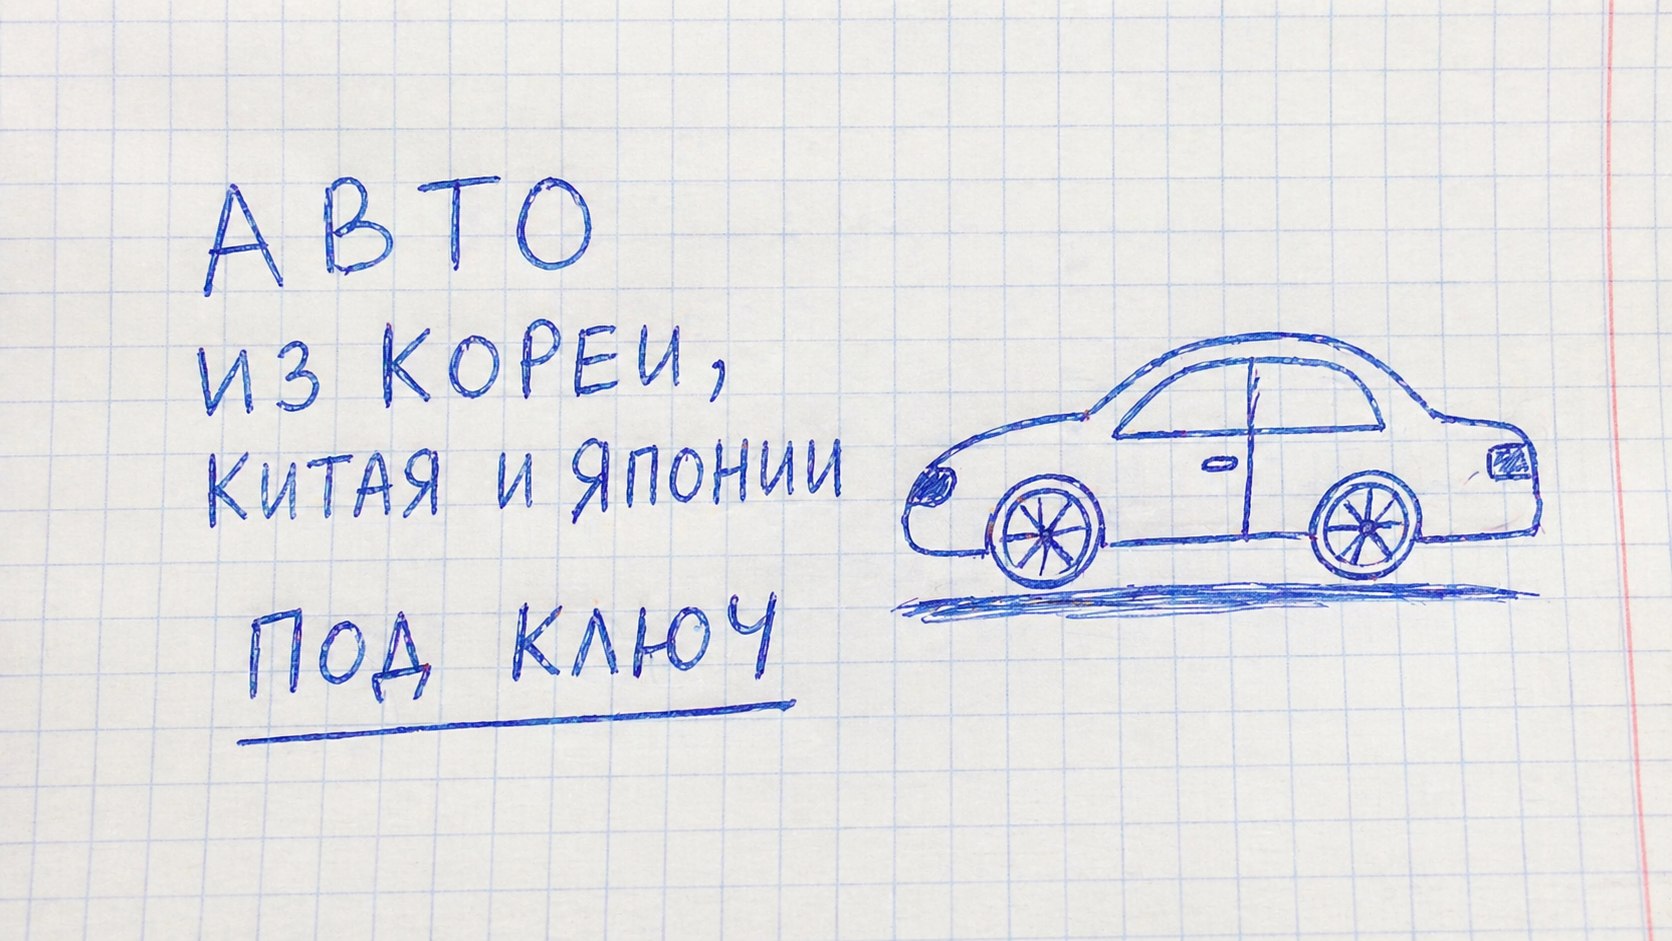 АВТО
ИЗ КОРЕИ,
КИТАЯ И ЯПОНИИ
ПОД КЛЮЧ